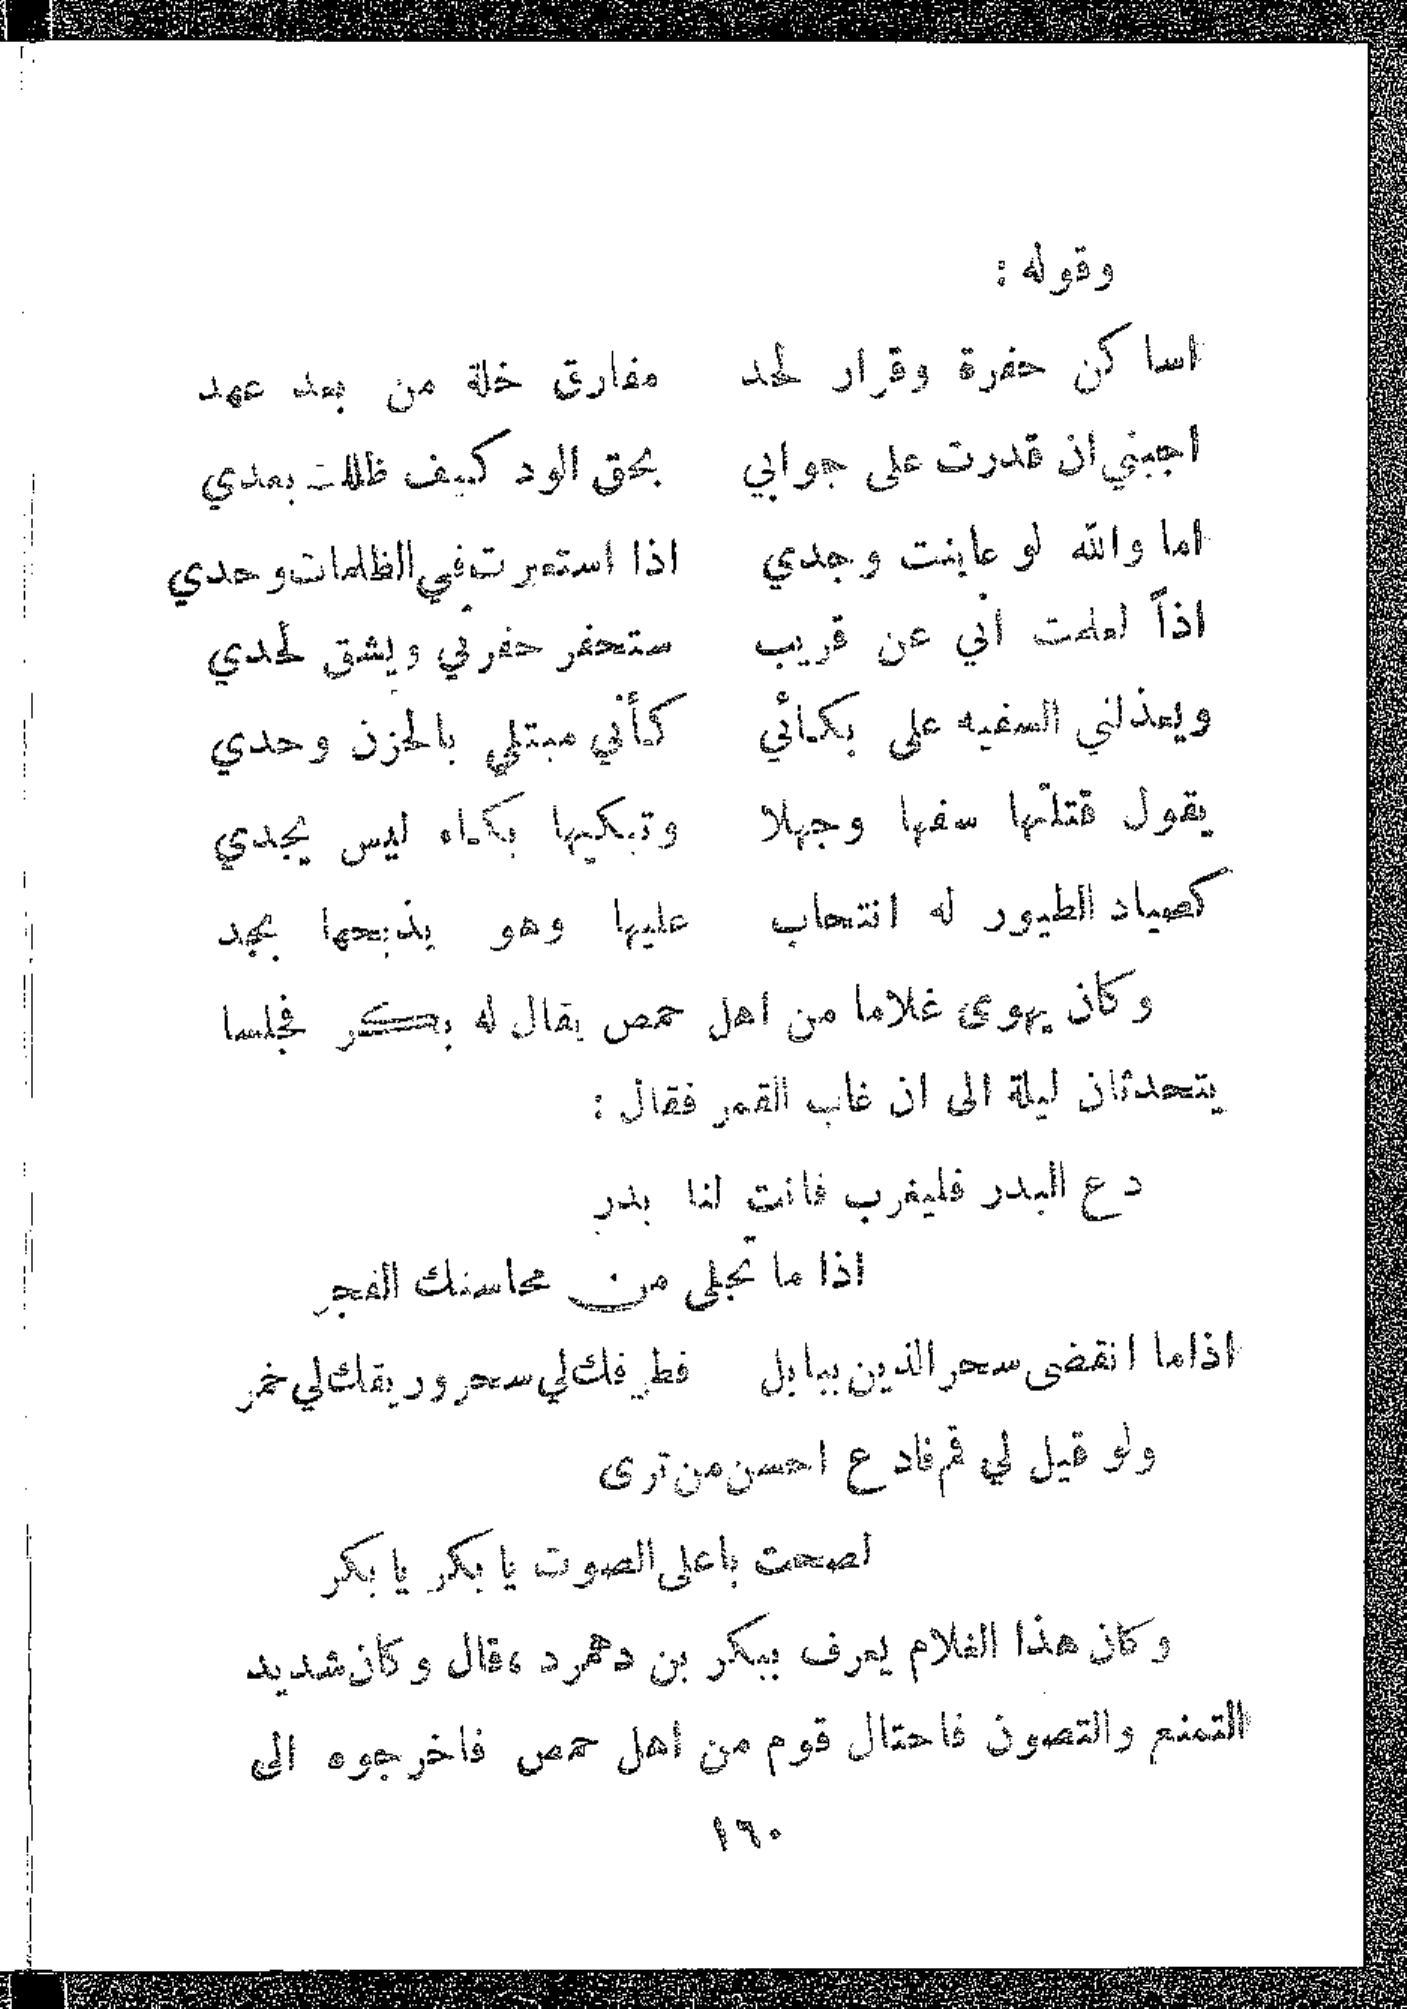 وقوله :
اساكن حفرة وقرار لحد مفارق خلة من بعد عهد
اجبني ان قدرت على جوابي بحق الود كيف ظللت بعدي
اما والله لو عاينت وجدي اذا استعبرت في الظلمات وحدي
اذاً لعلمت اني عن قريب ستحفر حفرتي ويشق لحدي
ويعذلني السفيه على بكائي كأني مبتلي بالحزن وحدي
يقول قتلتها سفها وجهلا وتبكيها بكاء ليس يجدي
كصياد الطيور له انتحاب عليها وهو يذبحها بجد
وكان يهوى غلاما من اهل حمص يقال له بكر فجلسا
يتحدثان ليلة الى ان غاب القمر فقال :
دع البدر فليغرب فانت لنا بدر
اذا ما تجلى من محاسنك الفجر
اذا ما انقضى سحر الذين ببابل فطرفك لي سحر وريقك لي خمر
ولو قيل لي قم فادع احسن من ترى
لصحت باعلى الصوت يا بكر يا بكر
وكان هذا الغلام يعرف ببكر بن دهمرد ، قال وكان شديد
التمنع والتصون فاحتال قوم من اهل حمص فاخرجوه الى
١٦٠